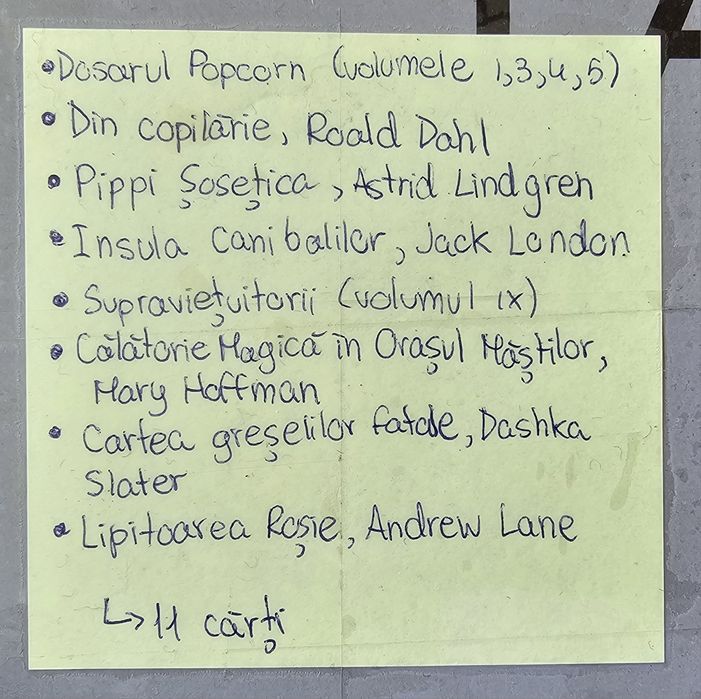 •Dosarul Popcorn (volumele 1,3,4,5)
• Din copilărie, Roald Dahl
• Pippi Șosețica, Astrid Lindgren
• Insula Canibalilor, Jack London
• Supraviețuitorii (volumul IX)
• Călătorie Magică în Orașul Măștilor,
Mary Hoffman
• Cartea greșelilor fatale, Dashka
Slater
• Lipitoarea Roșie, Andrew Lane
↳ 11 cărți